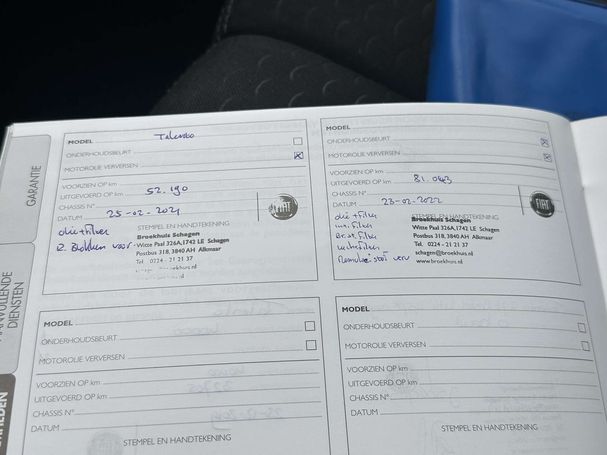 GARANTIE
AANVULLENDE DIENSTEN
MODEL Talento
ONDERHOUDSBEURT
MOTOROLIE VERVERSEN
VOORZIEN OP km
UITGEVOERD OP km 52.190
CHASSIS N°
DATUM 25-02-2021
FIAT
olie+filter
R. Blokken voor
Broekhuis Schagen
Witte Paal 326A,1742 LE Schagen
Postbus 318, 3840 AH Alkmaar
Tel. 0224 - 21 21 37
MODEL
ONDERHOUDSBEURT
MOTOROLIE VERVERSEN
VOORZIEN OP km
UITGEVOERD OP km 81.043
CHASSIS N°
DATUM 23-02-2022
FIAT
STEMPEL EN HANDTEKENING
olie+filter
int.filter
Br.st.filter
luchtfilter
Remvloeistof verv
Broekhuis Schagen
Witte Paal 326A,1742 LE Schagen
Postbus 318, 3840 AH Alkmaar
Tel. 0224 - 21 21 37
schagen@broekhuis.nl
www.broekhuis.nl
MODEL
ONDERHOUDSBEURT
MOTOROLIE VERVERSEN
VOORZIEN OP km
UITGEVOERD OP km
CHASSIS N°
DATUM
STEMPEL EN HANDTEKENING
MODEL
ONDERHOUDSBEURT
MOTOROLIE VERVERSEN
VOORZIEN OP km
UITGEVOERD OP km
CHASSIS N°
DATUM
STEMPEL EN HANDTEKENING